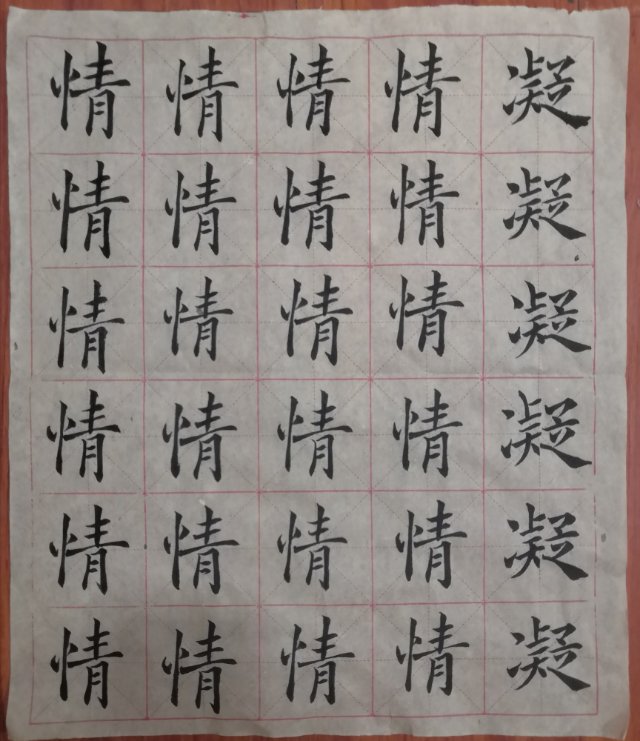 情情情情凝
情情情情凝
情情情情凝
情情情情凝
情情情情凝
情情情情凝